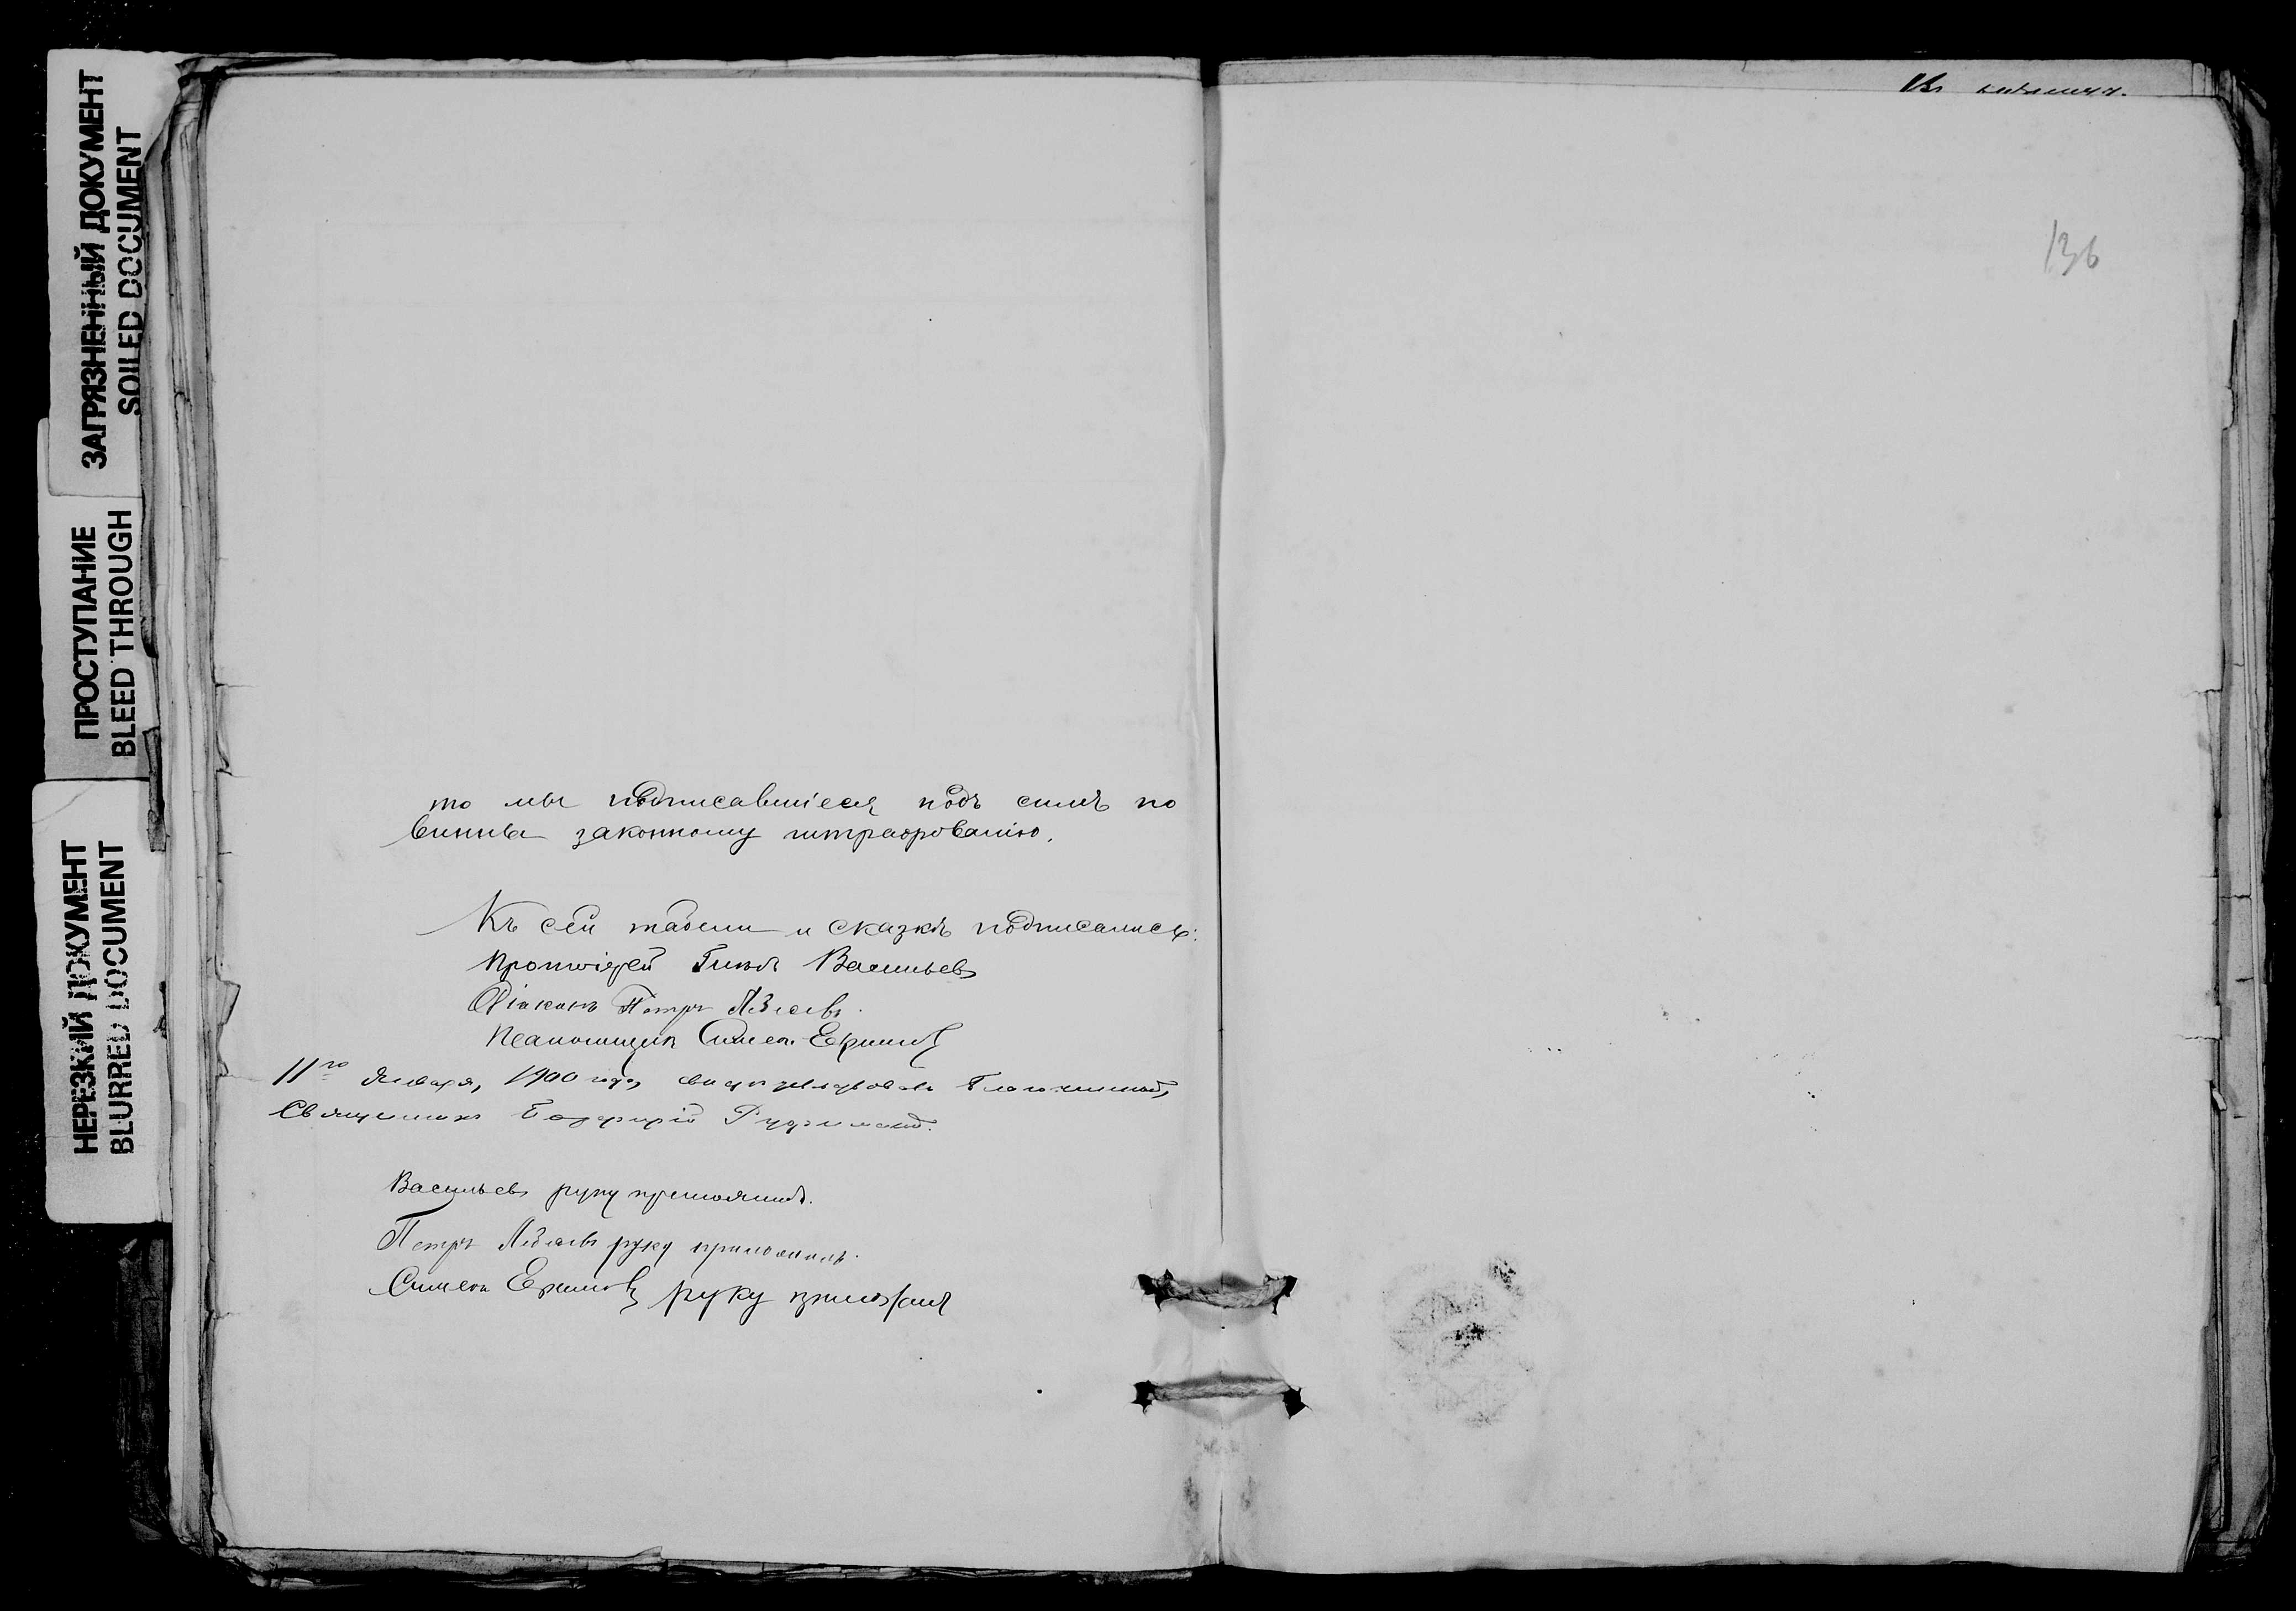 ЗАГРЯЗНЕННЫЙ ДОКУМЕНТ
SOILED DOCUMENT
ПРОСТУПАНИЕ
BLEED THROUGH
НЕРЕЗКИЙ ДОКУМЕНТ
BLURRED DOCUMENT
то мы подписавшіеся подъ симъ по
винны законному штрафованію.
Къ сей табели и сказкѣ подписались:
Протоіерей Васильевъ
Діаконъ Петръ
Псаломщикъ Симеон Ефимовъ
11го Января, 1900 года, свидѣтельствовалъ Благочинный,
Священникъ
Васильевъ руку приложилъ.
Петръ руку приложилъ.
Симеон Ефимовъ руку приложилъ
136